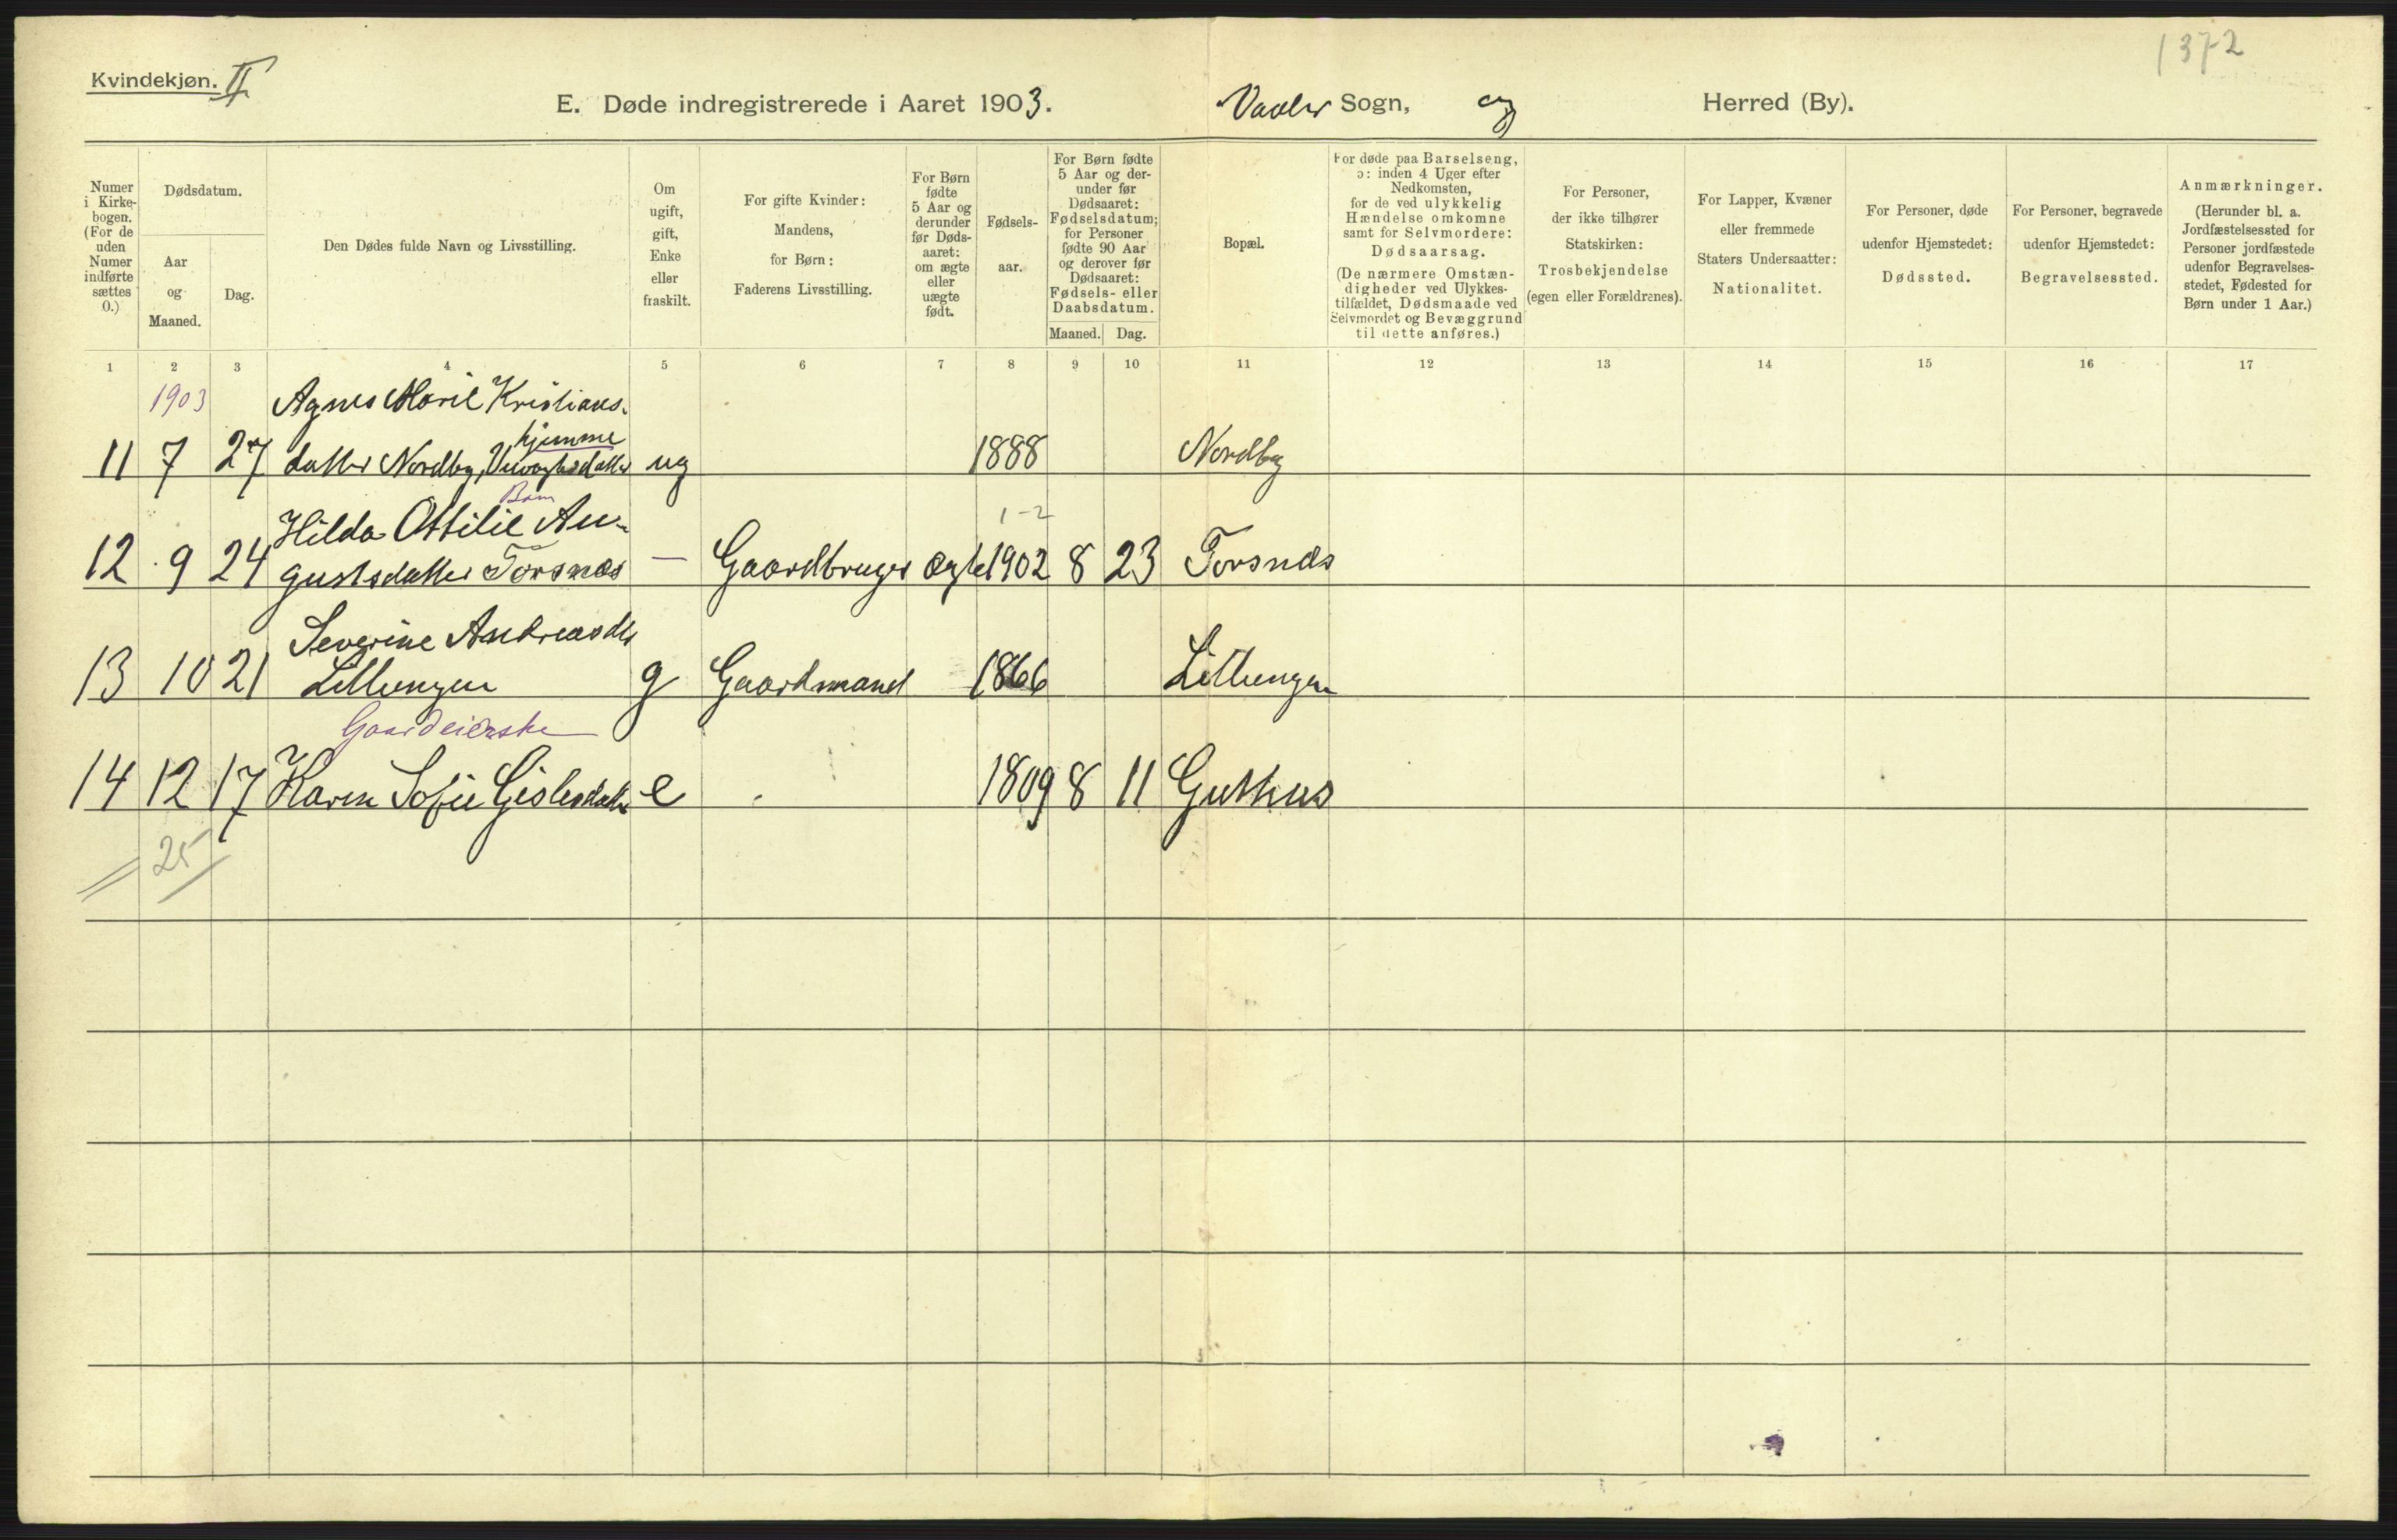 1372
Kvindekjøn. II
E. Døde indregistrerede i Aaret 1903. Vaaler Sogn, og Herred (By).
Numer i Kirkebogen. (For de uden Numer indførte sættes 0.)
Dødsdatum.
Aar og Maaned.
Dag.
Den Dødes fulde Navn og Livsstilling.
Om ugift, gift, Enke eller fraskilt.
For gifte Kvinder: Mandens, for Børn: Faderens Livsstilling.
For Børn fødte 5 Aar og derunder før Dødsaaret: om ægte eller uægte født.
Fødselsaar.
For Børn fødte 5 Aar og derunder før Dødsaaret: Fødselsdatum; for Personer fødte 90 Aar og derover før Dødsaaret: Fødsels- eller Daabsdatum.
Maaned. Dag.
Bopæl.
For døde paa Barselseng, ɔ: inden 4 Uger efter Nedkomsten, for de ved ulykkelig Hændelse omkomne samt for Selvmordere: Dødsaarsag. (De nærmere Omstændigheder ved Ulykkestilfældet, Dødsmaade ved Selvmordet og Bevæggrund til dette anføres.)
For Personer, der ikke tilhører Statskirken: Trosbekjendelse (egen eller Forældrenes).
For Lapper, Kvæner eller fremmede Staters Undersaatter: Nationalitet.
For Personer, døde udenfor Hjemstedet: Dødssted.
For Personer, begravede udenfor Hjemstedet: Begravelsessted.
Anmærkninger. (Herunder bl. a. Jordfæstelsessted for Personer jordfæstede udenfor Begravelsesstedet, Fødested for Børn under 1 Aar.)
1 2 3 4 5 6 7 8 9 10 11 12 13 14 15 16 17
1903 Agnes Marie Kristians-
hjemme
11 7 27 datter Nordby, ug 1888 Nordby
Barn
Hilda Otilie Au- 1-2
12 9 24 gustsdatter Torsnæs — Gaardbruger ægte 1902 8 23 Torsnæs
Severine Andreasdtr
13 10 21 Lillengen g Gaardmand 1866 Lillengen
Gaardeierske
14 12 17 Karen Sofie Gislesdatter e 1809 8 11 Guthus
25